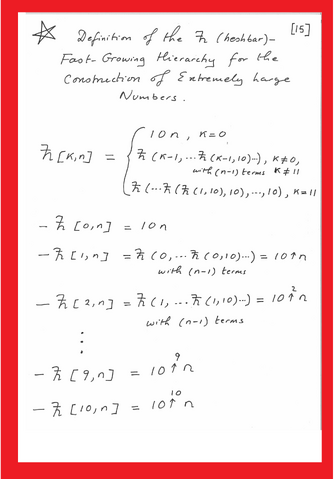 [15]
☆ Definition of the ℏ (heshbar)-
Fast-Growing Hierarchy for the
Construction of Extremely Large
Numbers.
ℏ[K,n] = { 10n, K=0
ℏ(K-1,...ℏ(K-1,10)...), K≠0,
with (n-1) terms K≠11
ℏ(...ℏ(ℏ(1,10),10),...,10), K=11
- ℏ[0,n] = 10n
- ℏ[1,n] = ℏ(0,...ℏ(0,10)...) = 10↑n
with (n-1) terms
- ℏ[2,n] = ℏ(1,...ℏ(1,10)...) = 10↑²n
with (n-1) terms
⋮
- ℏ[9,n] = 10↑⁹n
- ℏ[10,n] = 10↑¹⁰n